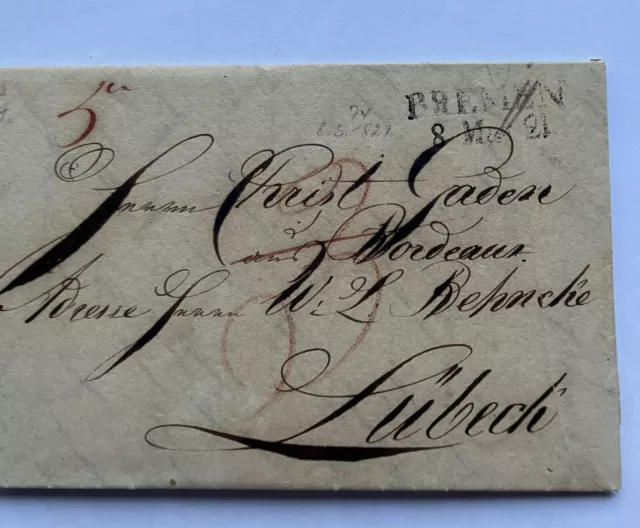 BREMEN
8 Mai 21
Herrn Christ Gaden
aus Bordeaux.
Adresse Herrn W. L. Behncke
Lübeck